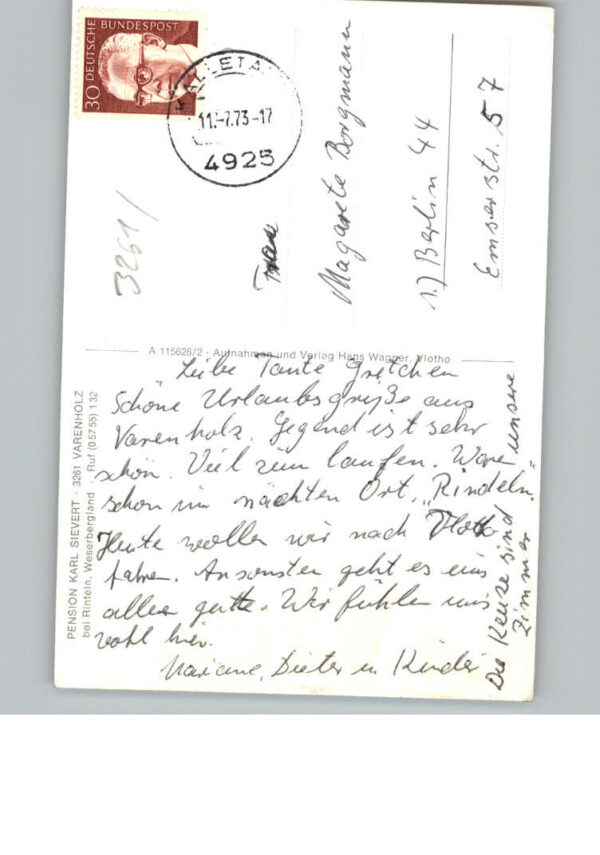 30 DEUTSCHE BUNDESPOST
KALLETA
11.-7.73-17
4925
3261/
Frau
Magarete Borgmann
1) Berlin 44
Emserstr. 57
A 115626/2 · Aufnahmen und Verlag Hans Wagner, Vlotho
PENSION KARL SIEVERT · 3261 VARENHOLZ
bei Rinteln, Weserbergland · Ruf (0 57 55) 1 32
Liebe Tante Gretchen
Schöne Urlaubsgrüße aus
Varenholz. Gegend ist sehr
schön. Viel zum laufen. Waren
schon im nächten Ort, "Rindeln"
Heute wollen wir nach Vlotho
fahren. Ansonsten geht es uns
allen gut. Wir fühlen uns
wohl hier.
Mariane, Dieter u. Kinder
Die Kreuze sind unsere
Zimmer